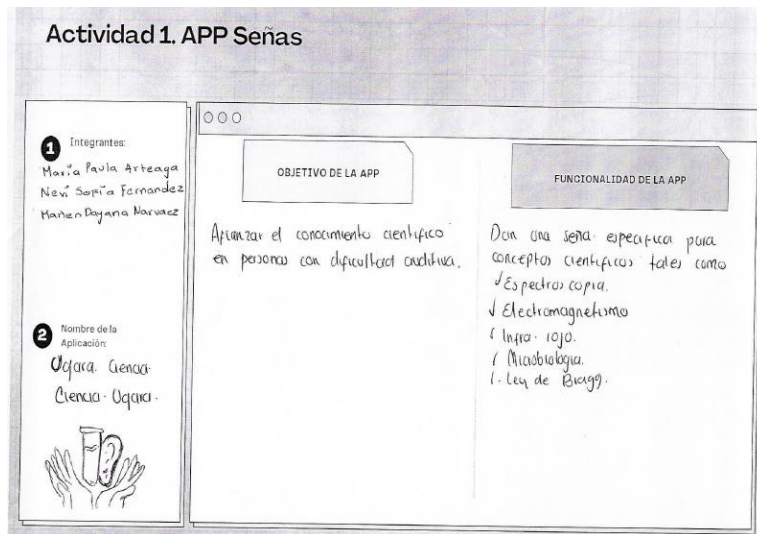 Actividad 1. APP Señas
1 Integrantes:
María Paula Arteaga
Nevi Sofía Fernandez
Marien Dayana Narvaez
2 Nombre de la
Aplicación:
Uqara. Ciencia.
Ciencia. Uqara.
OBJETIVO DE LA APP
Afianzar el conocimiento científico
en personas con dificultad auditiva.
FUNCIONALIDAD DE LA APP
Dan una seña especifica para
conceptos científicos tales como
✓ Espectroscopia.
✓ Electromagnetismo
✓ Infra-rojo.
✓ Microbiología.
✓ Ley de Bragg.